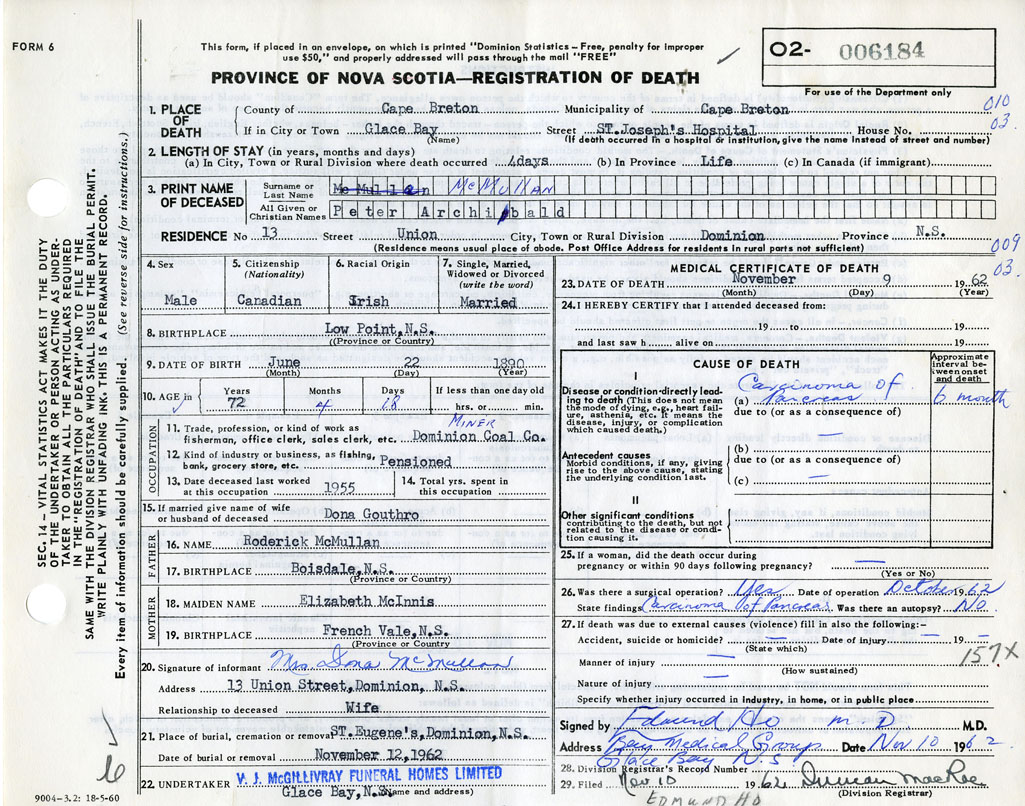 FORM 6
This form, if placed in an envelope, on which is printed "Dominion Statistics – Free, penalty for improper
use $50," and properly addressed will pass through the mail "FREE"
O2- 006184
For use of the Department only
PROVINCE OF NOVA SCOTIA—REGISTRATION OF DEATH
010
03.
1. PLACE OF DEATH
County of Cape Breton Municipality of Cape Breton
If in City or Town Glace Bay Street ST.Joseph's Hospital House No.
(Name) (If death occurred in a hospital or institution, give name instead of street and number)
2. LENGTH OF STAY (in years, months and days)
(a) In City, Town or Rural Division where death occurred 4days (b) In Province Life (c) In Canada (if immigrant)
3. PRINT NAME OF DECEASED
Surname or Last Name Mc Mullan McMULLAN
All Given or Christian Names Peter Archibald
RESIDENCE No 13 Street Union City, Town or Rural Division Dominion Province N.S.
(Residence means usual place of abode. Post Office Address for residents in rural parts not sufficient)
009
03.
4. Sex
Male
5. Citizenship
(Nationality)
Canadian
6. Racial Origin
Irish
7. Single, Married,
Widowed or Divorced
(write the word)
Married
8. BIRTHPLACE Low Point,N.S.
(Province or Country)
9. DATE OF BIRTH June 22 1890
(Month) (Day) (Year)
10. AGE in Years 72 Months 4 Days 18 If less than one day old
hrs. or min.
OCCUPATION
MINER
11. Trade, profession, or kind of work as
fisherman, office clerk, sales clerk, etc. Dominion Coal Co.
12. Kind of industry or business, as fishing,
bank, grocery store, etc. Pensioned
13. Date deceased last worked
at this occupation 1955
14. Total yrs. spent in
this occupation
15. If married give name of wife
or husband of deceased Dona Gouthro
FATHER
16. NAME Roderick McMullan
17. BIRTHPLACE Boisdale,N.S.
(Province or Country)
MOTHER
18. MAIDEN NAME Elizabeth McInnis
19. BIRTHPLACE French Vale,N.S.
(Province or Country)
20. Signature of informant Mrs. Dona McMullan
Address 13 Union Street,Dominion, N.S.
Relationship to deceased Wife
21. Place of burial, cremation or removal ST.Eugene's,Dominion,N.S.
Date of burial or removal November 12,1962
22. UNDERTAKER V. J. McGILLIVRAY FUNERAL HOMES LIMITED
Glace Bay,N.S.
(Name and address)
MEDICAL CERTIFICATE OF DEATH
23. DATE OF DEATH November 9 1962
(Month) (Day) (Year)
24. I HEREBY CERTIFY that I attended deceased from:
19 to 19
and last saw h alive on 19
CAUSE OF DEATH
Approximate
interval be-
tween onset
and death
I
Disease or condition directly lead-
ing to death (This does not mean
the mode of dying, e.g., heart fail-
ure, asthenia, etc. It means the
disease, injury, or complication
which caused death.)
Carcinoma of
(a) Pancreas 6 month
due to (or as a consequence of)
—
Antecedent causes
Morbid conditions, if any, giving
rise to the above cause, stating
the underlying condition last.
(b)
due to (or as a consequence of)
(c) —
II
Other significant conditions
contributing to the death, but not
related to the disease or condi-
tion causing it.
25. If a woman, did the death occur during
pregnancy or within 90 days following pregnancy? —
(Yes or No)
26. Was there a surgical operation? Yes Date of operation October 1962
State findings Carcinoma of Pancreas Was there an autopsy? NO
27. If death was due to external causes (violence) fill in also the following:-
Accident, suicide or homicide? — Date of injury — 19 —
(State which)
157X
Manner of injury —
(How sustained)
Nature of injury —
Specify whether injury occurred in Industry, in home, or in public place
Signed by Edmund Ho M D M.D.
Address Bay Medical Group Date Nov 10 1962
Glace Bay N.S.
28. Division Registrar's Record Number
29. Filed Nov 10 1962 Duncan MacRae
(Division Registrar)
EDMUND HO
SEC. 14 – VITAL STATISTICS ACT MAKES IT THE DUTY
OF THE UNDERTAKER OR PERSON ACTING AS UNDER-
TAKER TO OBTAIN ALL THE PARTICULARS REQUIRED
IN THE "REGISTRATION OF DEATH" AND TO FILE THE
SAME WITH THE DIVISION REGISTRAR WHO SHALL ISSUE THE BURIAL PERMIT.
WRITE PLAINLY WITH UNFADING INK. THIS IS A PERMANENT RECORD.
Every item of information should be carefully supplied. (See reverse side for instructions.)
9004-3.2: 18-5-60